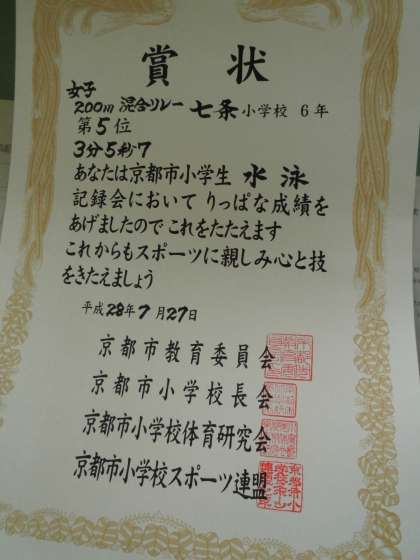 賞状
女子
200m 混合リレー 七条小学校 6年
第5位
3分5秒7
あなたは京都市小学生 水泳
記録会において りっぱな成績を
あげましたので これをたたえます
これからもスポーツに親しみ心と技
をきたえましょう
平成28年7月27日
京都市教育委員会
京都市小学校長会
京都市小学校体育研究会
京都市小学校スポーツ連盟